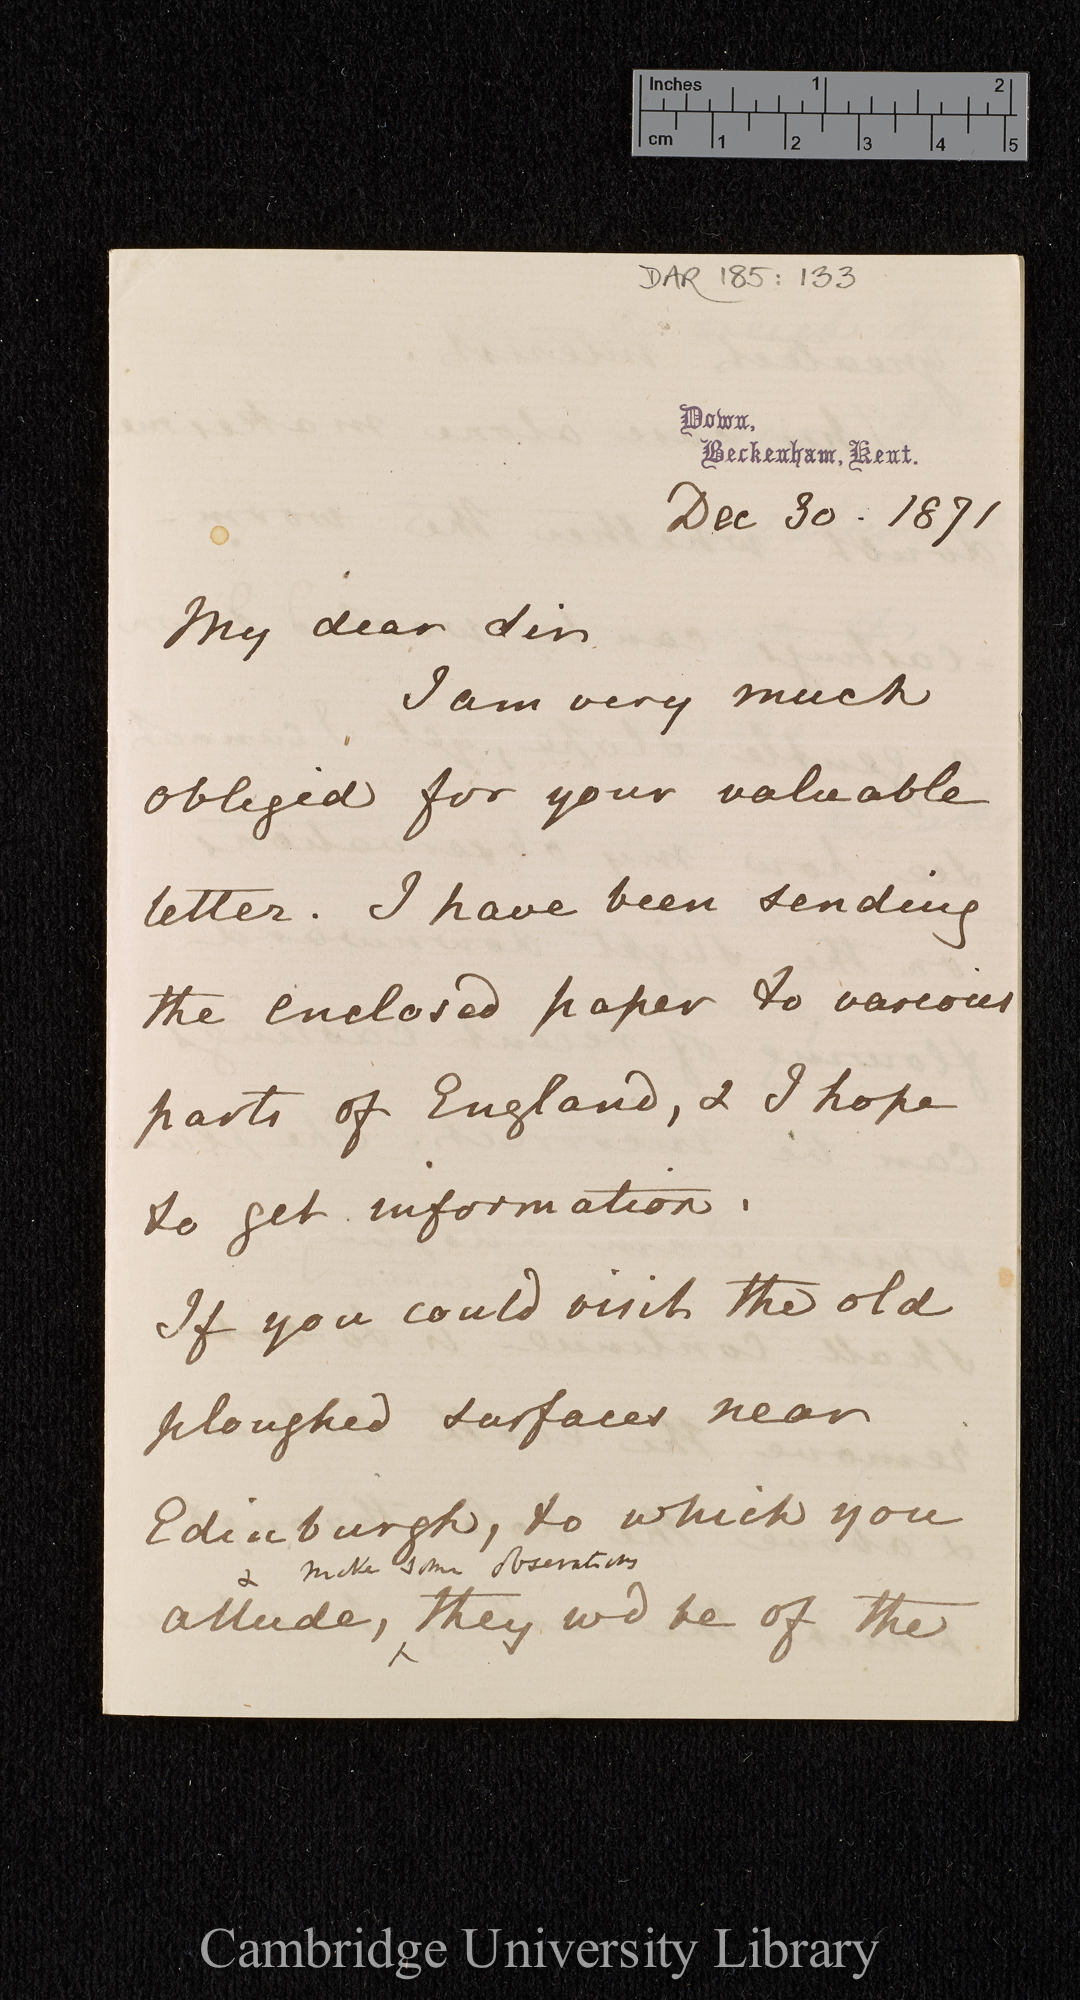 Inches 1 2
cm 1 2 3 4 5
DAR 185: 133
Down,
Beckenham, Kent.
Dec 30 . 1871
My dear Sir
I am very much
obliged for your valuable
letter. I have been sending
the enclosed paper to various
parts of England, & I hope
to get information.
If you could visit the old
ploughed surfaces near
Edinburgh, to which you
& make some observations
allude, they wd be of the
Cambridge University Library